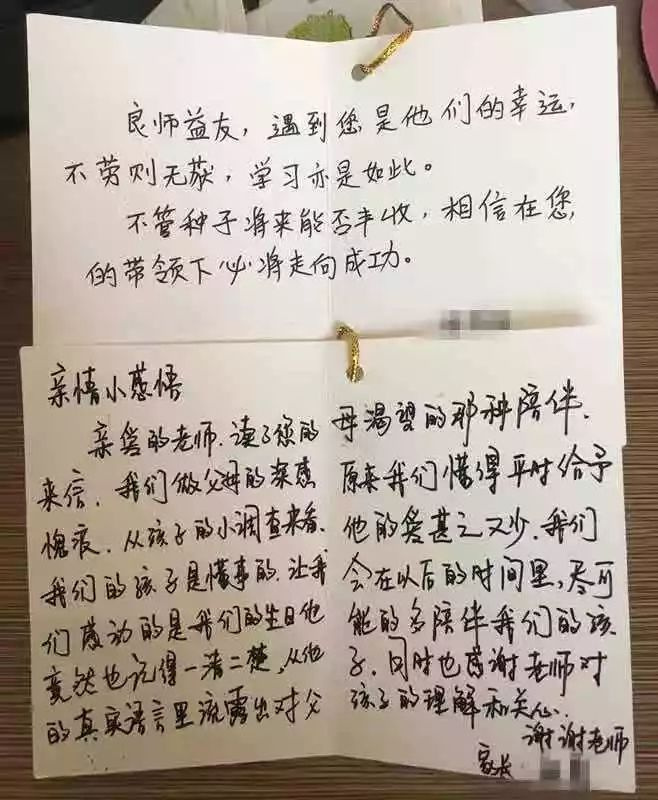 良师益友，遇到您是他们的幸运，
不劳则无获，学习亦是如此。
不管种子将来能否丰收，相信在您
的带领下必将走向成功。
亲情小感悟
亲爱的老师．读了您的
来信．我们做父母的深感
愧疚．从孩子的小调查来看．
我们的孩子是懂事的．让我
们感动的是我们的生日他
竟然也记得一清二楚，从他
的真实语言里流露出对父
母渴望的那种陪伴．
原来我们懂得平时给予
他的爱甚之又少．我们
会在以后的时间里，尽可
能的多陪伴我们的孩
子．同时也感谢老师对
孩子的理解和关心．
谢谢老师
家长